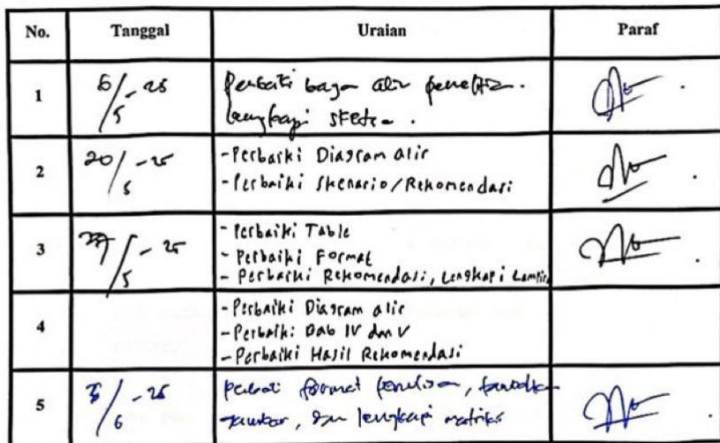 No. Tanggal Uraian Paraf
1 6/5 - 25 Perbaiki bagan alir penelitian.
lengkapi sketsa.
2 20/5 - 25 - Perbaiki Diagram alir
- Perbaiki Skenario/Rekomendasi
3 /5 - 25 - Perbaiki Table
- Perbaiki Format
- Perbaiki Rekomendasi, Lengkapi Lampiran
4 - Perbaiki Diagram alir
- Perbaiki Bab IV dan V
- Perbaiki Hasil Rekomendasi
5 /6 - 25 format penulisan,
gambar, dan lengkapi matriks